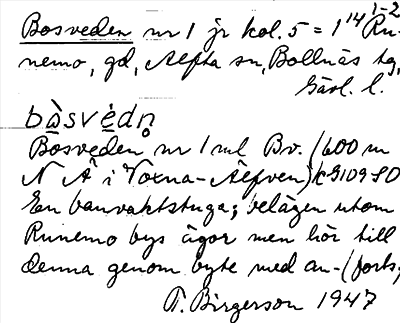 Bosveden nr 1 jr kol. 5 = 1¹⁴ 1-2 Ru-
nemo, gd, Alfta sn, Bollnäs tg,
Gävl. l.
bòsvédn̥
Bosveden nr 1 ml Bv. (600 m
N Å i Voxna-Älfven)
En banvaktstuga; belägen utom
Runemo bys ägor men hör till
denna genom byte med an- (forts,
T. Birgerson 1947